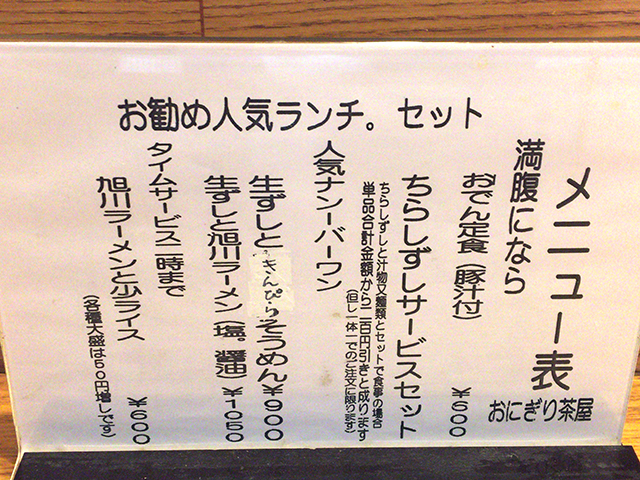 お勧め人気ランチ。セット
メニュー表
おにぎり茶屋
満腹になら
おでん定食（豚汁付） ¥600
ちらしずしサービスセット
ちらしずしと汁物又麺類とセットで食事の場合
単品合計金額から二百円引きと成ります
（但し一体一でのご注文に限ります）
人気ナンーバーワン
生ずしときんぴらそうめん ¥900
生ずしと旭川ラーメン（塩。醤油） ¥1050
タイムサービス二時まで
旭川ラーメンと少ライス ¥600
（各種大盛は50円増しです）